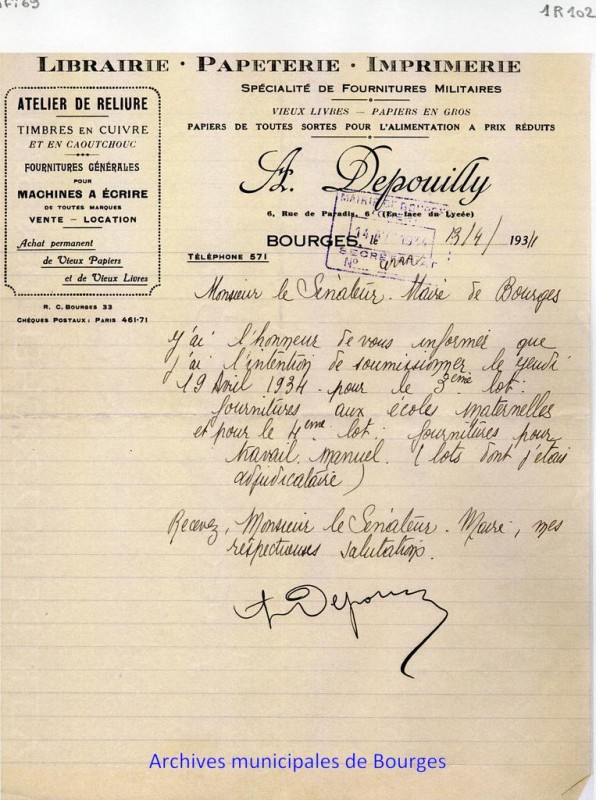 1R102
LIBRAIRIE · PAPETERIE · IMPRIMERIE
SPÉCIALITÉ DE FOURNITURES MILITAIRES
VIEUX LIVRES — PAPIERS EN GROS
PAPIERS DE TOUTES SORTES POUR L'ALIMENTATION A PRIX RÉDUITS
ATELIER DE RELIURE
TIMBRES EN CUIVRE
ET EN CAOUTCHOUC
FOURNITURES GÉNÉRALES
POUR
MACHINES A ÉCRIRE
DE TOUTES MARQUES
VENTE – LOCATION
Achat permanent
de Vieux Papiers
et de Vieux Livres
R. C. BOURGES 33
CHÈQUES POSTAUX : PARIS 461-71
A. Depouilly
6, Rue de Paradis, 6 (En face du Lycée)
BOURGES, le 13/4/1934
TÉLÉPHONE 571
MAIRIE DE BOURGES
14 1934
SECRÉTARIAT
N°
Monsieur le Sénateur. Maire de Bourges
J'ai l'honneur de vous informer que
j'ai l'intention de soumissionner le jeudi
19 Avril 1934. pour le 3ème lot:
fournitures aux écoles maternelles
et pour le 4ème lot: fournitures pour
travail manuel. (lots dont j'étais
adjudicataire)
Recevez, Monsieur le Sénateur. Maire, mes
respectueuses salutations.
A Depouilly
Archives municipales de Bourges